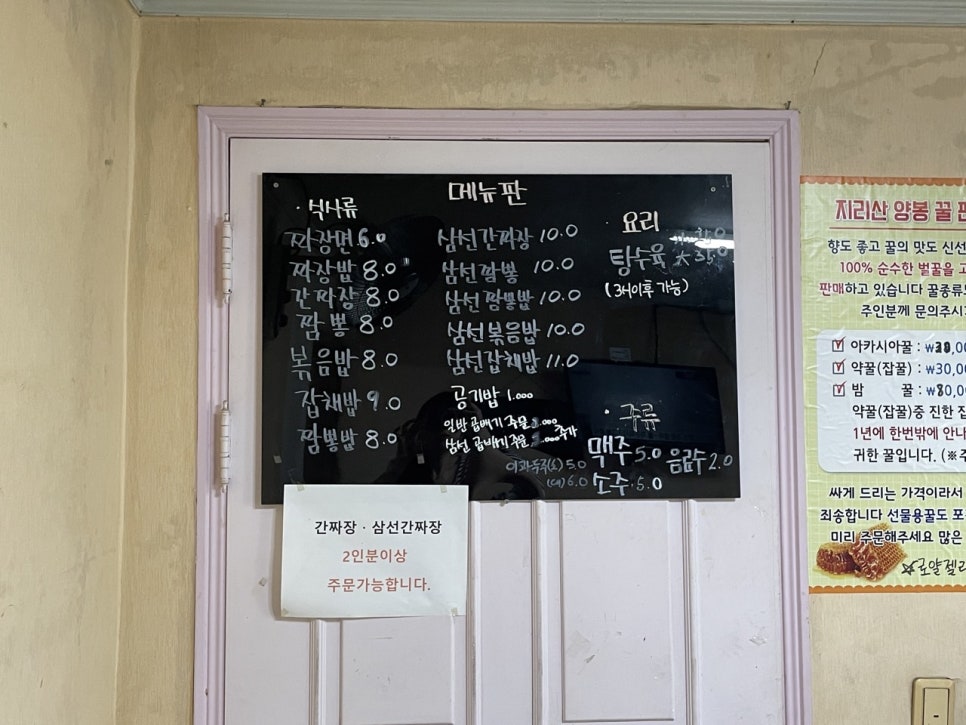 메뉴판
· 식사류
짜장면 6.0
짜장밥 8.0
간짜장 8.0
짬뽕 8.0
볶음밥 8.0
잡채밥 9.0
짬뽕밥 8.0
삼선간짜장 10.0
삼선짬뽕 10.0
삼선짬뽕밥 10.0
삼선볶음밥 10.0
삼선잡채밥 11.0
공기밥 1.000
일반 곱배기 주문
삼선 곱배기 주문 추가
· 요리
탕수육 大 35.0
(3시이후 가능)
· 주류
맥주 5.0 음료수 2.0
소주 · 5.0
이과두주(소) 5.0
(대) 6.0
간짜장 · 삼선간짜장
2인분이상
주문가능합니다.
지리산 양봉 꿀
향도 좋고 꿀의 맛도 신선
100% 순수한 벌꿀을
판매하고 있습니다 꿀종류
주인분께 문의주시
☑ 아카시아꿀 :
☑ 약꿀(잡꿀) : ₩30,00
☑ 밤 꿀 :
약꿀(잡꿀)중 진한
1년에 한번밖에 안나
귀한 꿀입니다. (※
싸게 드리는 가격이라서
죄송합니다 선물용꿀도
미리 주문해주세요 많은
☆로얄젤리